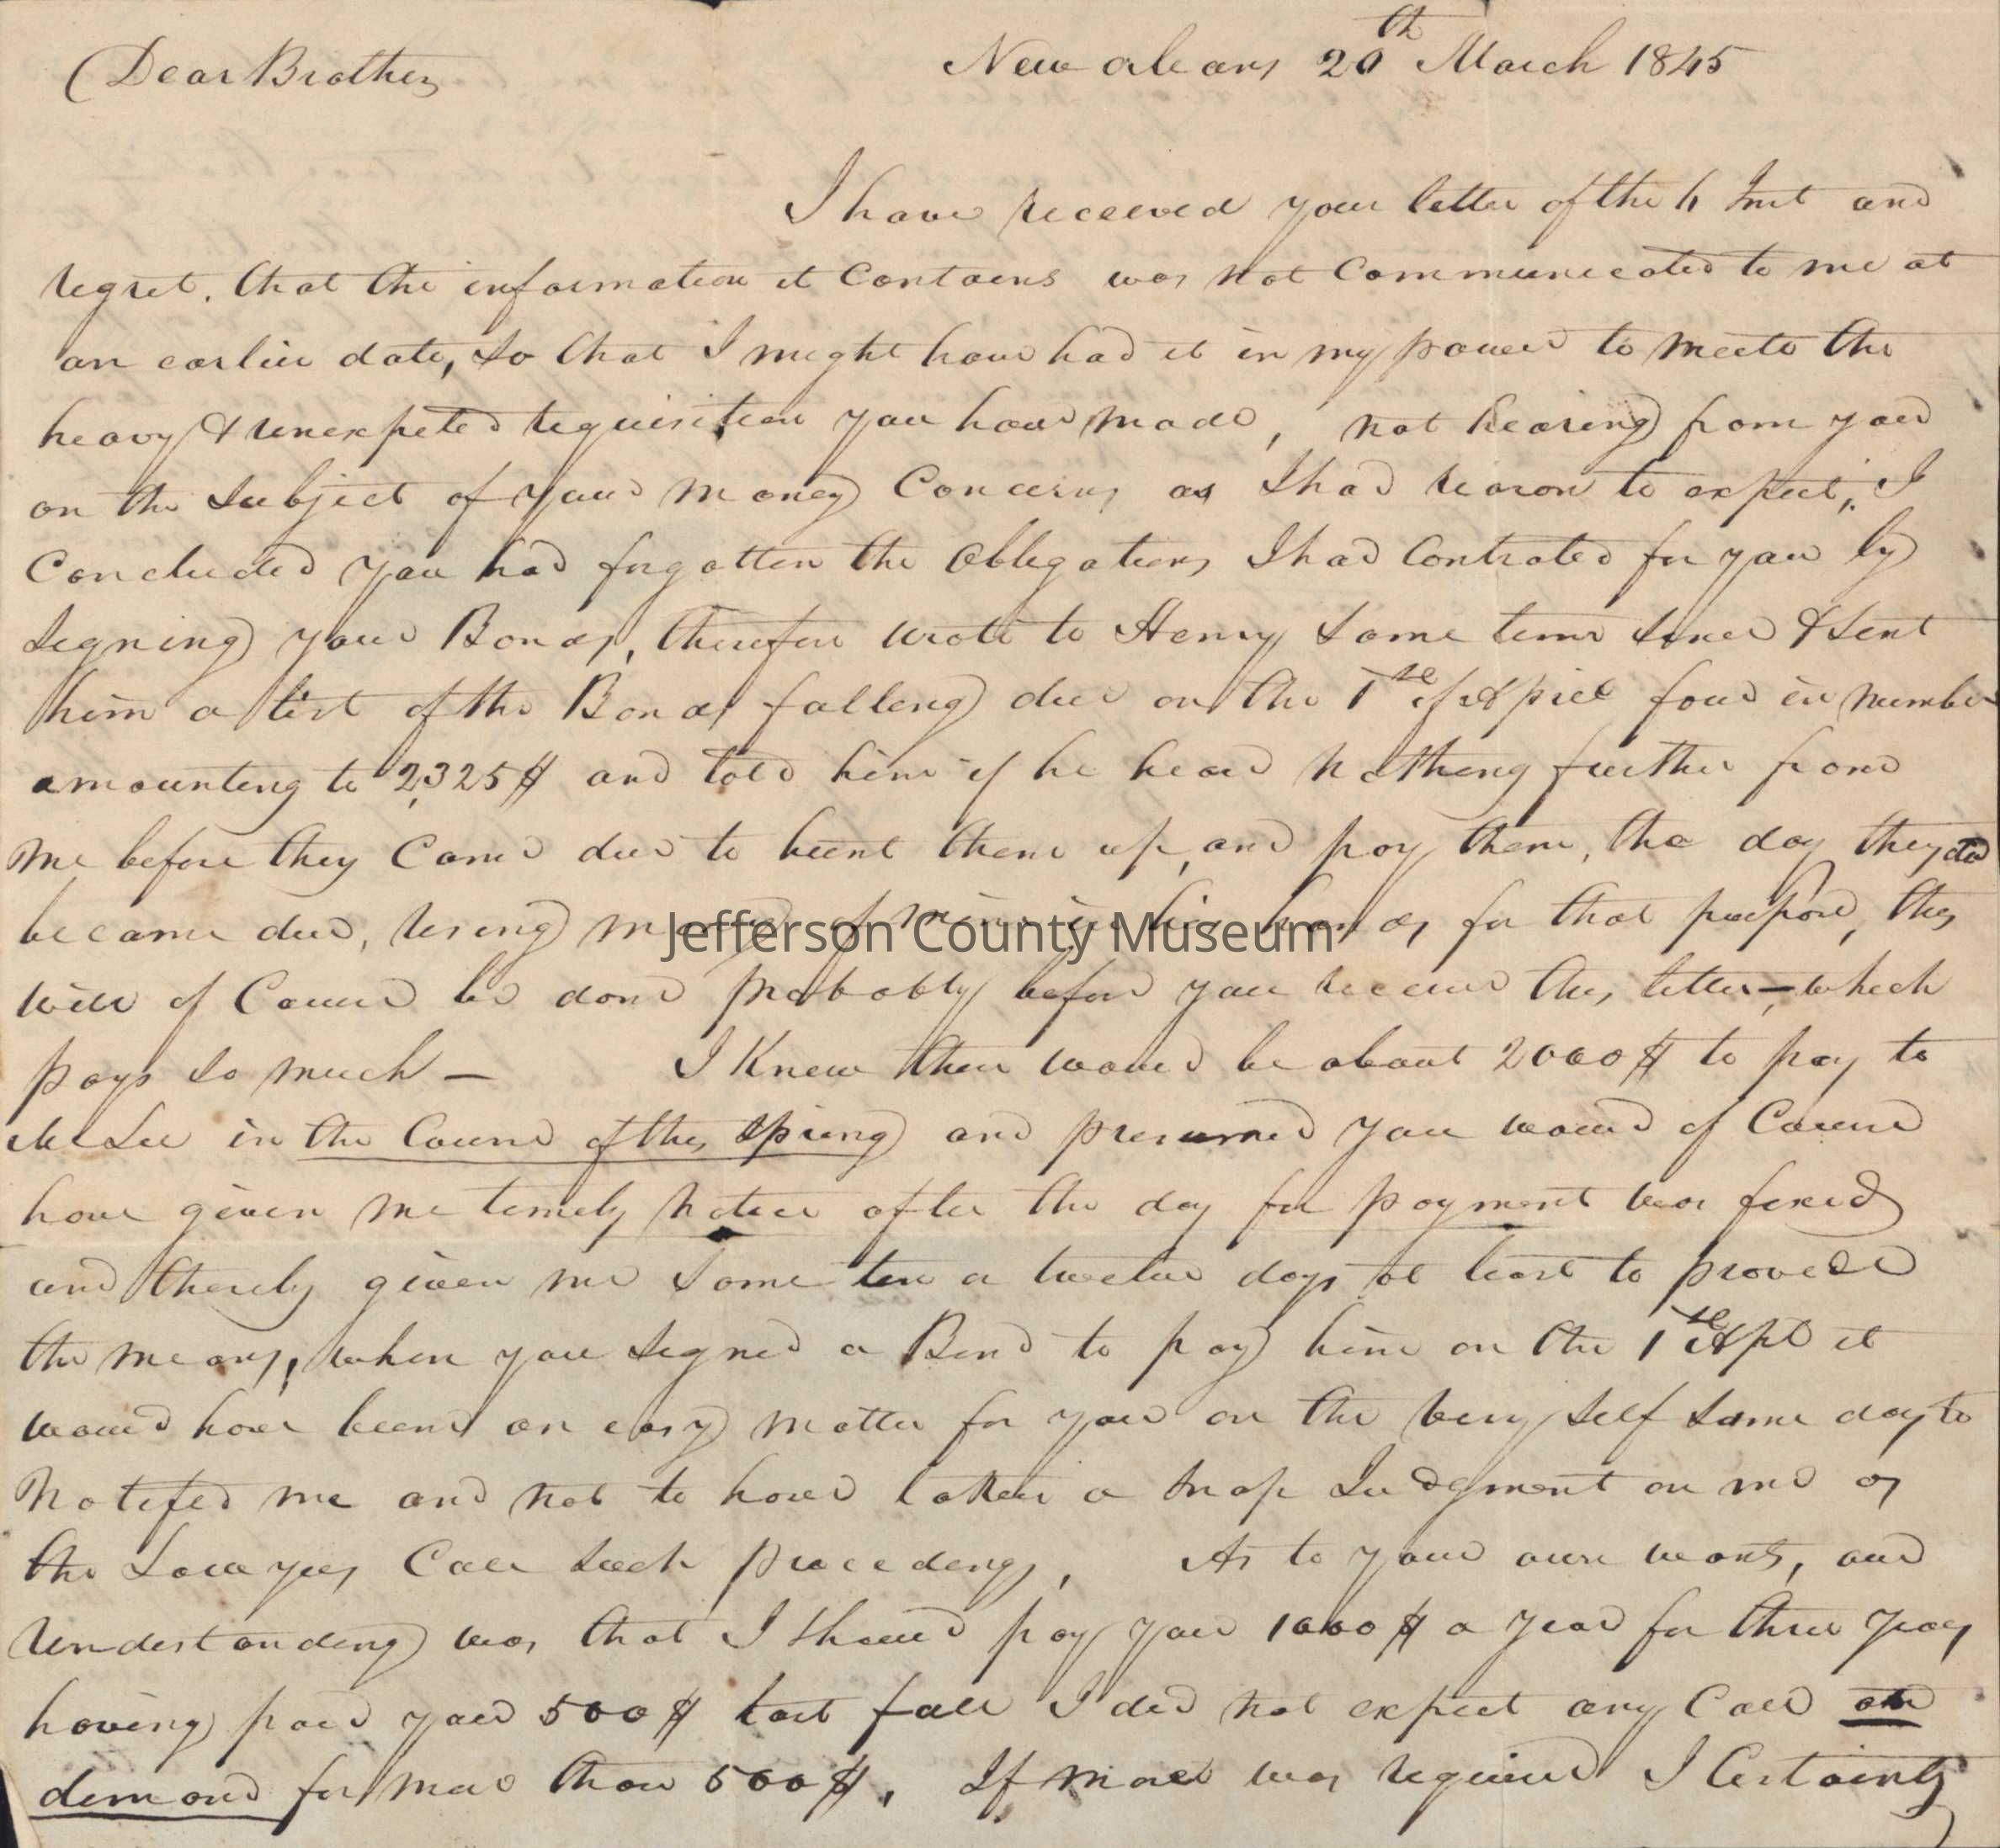 New orleans 20th March 1845
Dear Brother
I have received your letter of the 4 Inst and
regret, that the information it contains was not Communicated to me at
an earlier date, so that I might have had it in my power to meete the
heavy & unexpeted requisition you have made, not hearing from you
on the subject of your money Concerns as I had reason to expect, I
Concluded you had forgotten the obligations I had Contrated for you by
signing your Bonds, therefore wrote to Henry some time since & sent
him a list of the Bonds falling due on the 1st of April four in number
amounting to 2,325$ and told him if he heard nothing further from
me before they Came due to hunt them up, and pay them, the day they
became due, using money of mine in his hands for that purpose, this
will of Course be done probably before you receive this letter — which
pays so much — I Knew there would be about 2000$ to pay to
McLee in the Course of this spring and presumed you would of Course
have given me timely notice after the day for payment was fixed
and thereby given me some ten a twelve days at least to provide
the means, when you signed a Bond to pay him on the 1st Apl it
would have been an easy matter for you on the very self same day to
Notifed me and not to have taken a snap Judgment on me as
the Lawyers Call such proceedings, As to your own wants, our
Understanding was that I should pay you 1000$ a year for three years
having paid you 500$ last fall I did not expect any Call or
demand for more than 500$, If more was required I Certainly
Jefferson County Museum